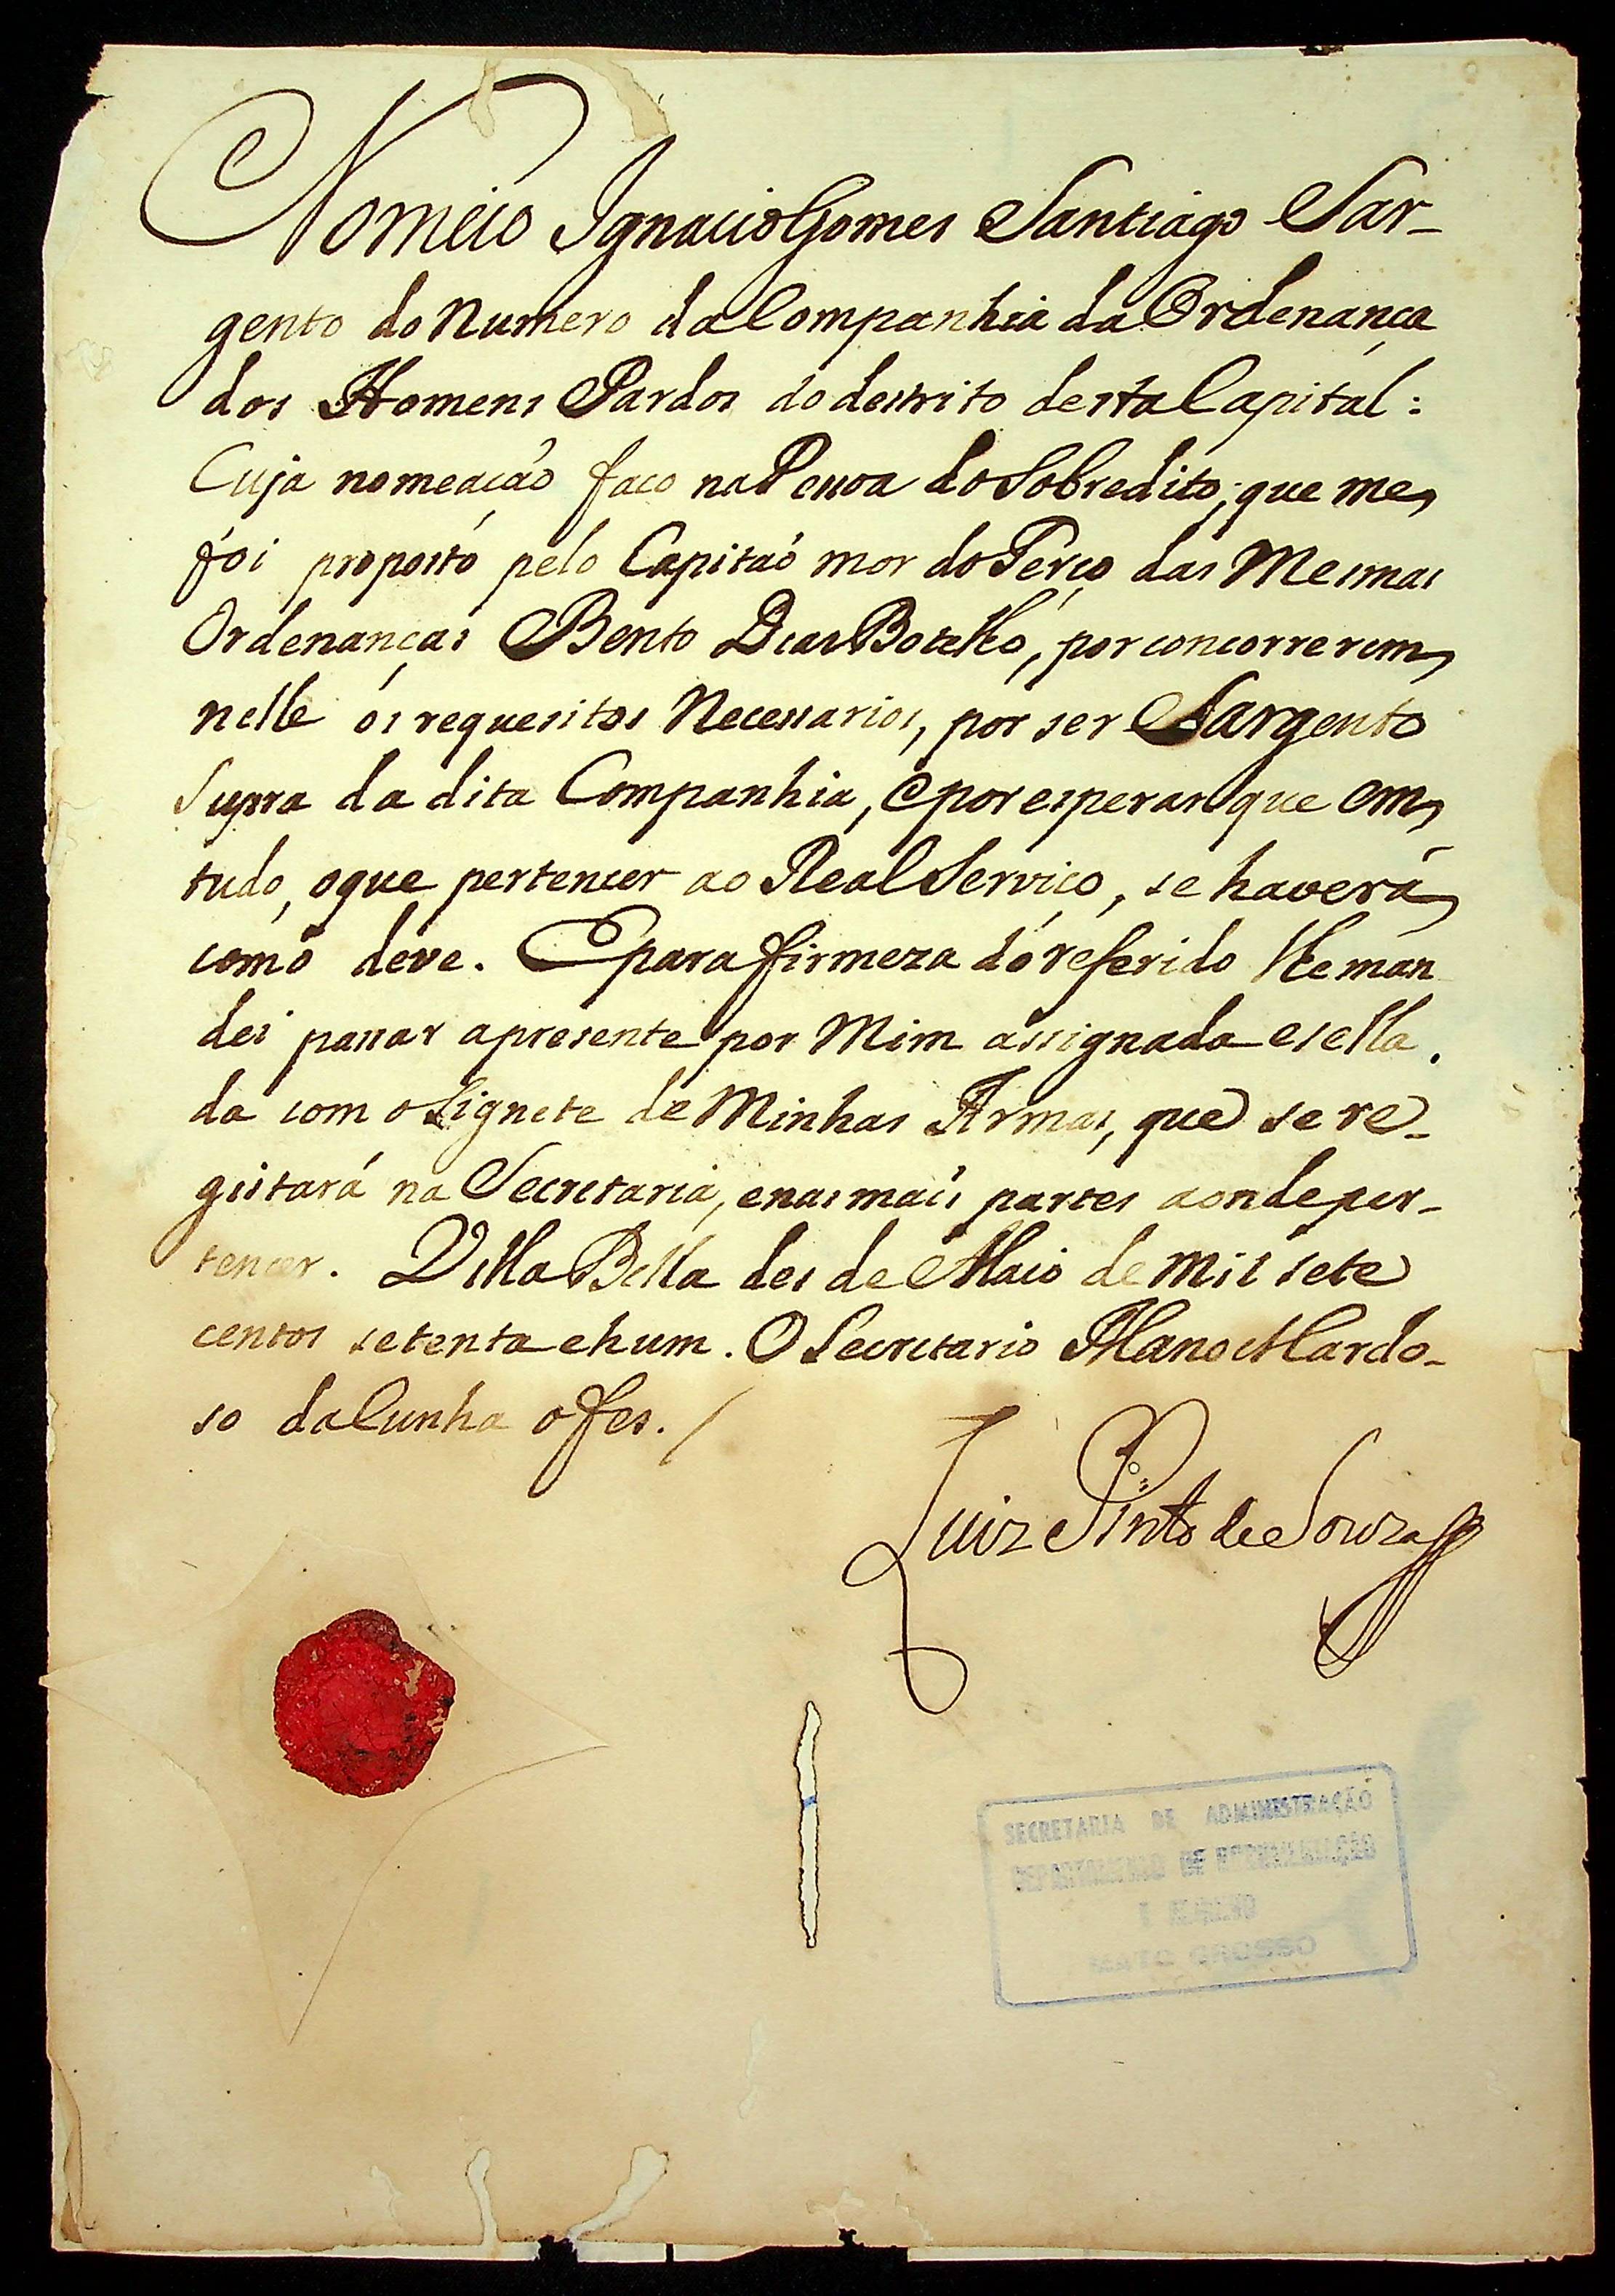 Nomeio Ignacio Gomes Santiago Sar-
gento do Numero da Companhia da Ordenança
dos Homens Pardos do destrito desta Capital:
Cuja nomeação faço na Pessoa do Sobredito; que me
foi proposto pelo Capitaó mor do Terço das Mesmas
Ordenanças Bento Dias Botelho, por concorrerem
nelle os requesitos Necessarios, por ser Sargento
Supra da dita Companhia, e por esperar que em
tudo, o que pertencer ao Real Serviço, se haverá
como deve. E para firmeza do referido lhe man
dei passar a presente por Mim assignada e sella.
da com o Signete de Minhas Armas, que se re-
gistará na Secretaria, e nas mais partes aonde per-
tencer. Villa Bella des de Maio de mil sete
centos setenta e hum. O Secretario Manoel Cardo-
so da Cunha o fes. /
Luiz Pinto de Souza
SECRETARIA DE ADMINISTRAÇÃO
DEPARTAMENTO DE DOCUMENTAÇÃO
MATO GROSSO